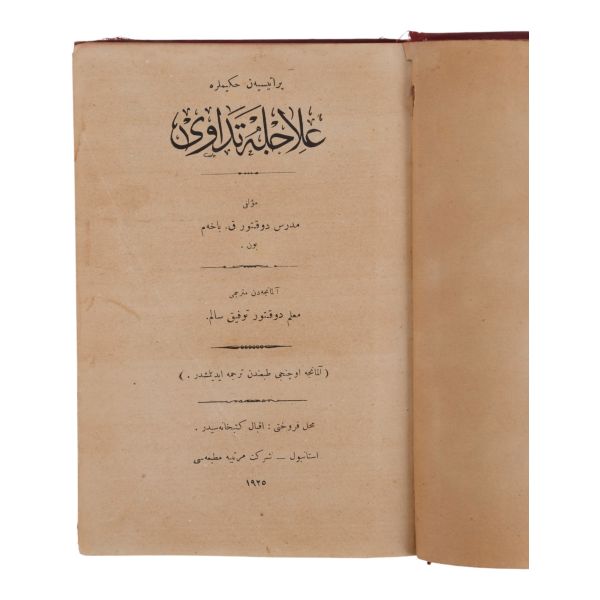 پراتیسیەن حکیملره
علاجله تداوی
مؤلفی
مدرس دوقتور ق. باخەم
بون .
آلمانجه‌دن مترجمی
معلم دوقتور توفیق سالم.
( آلمانجه اوچنجی طبعندن ترجمه ایدیلمشدر . )
محل فروختی : اقبال کتبخانه‌سیدر .
استانبول — شرکت مرتبیه مطبعه‌سی
۱۹۲۵